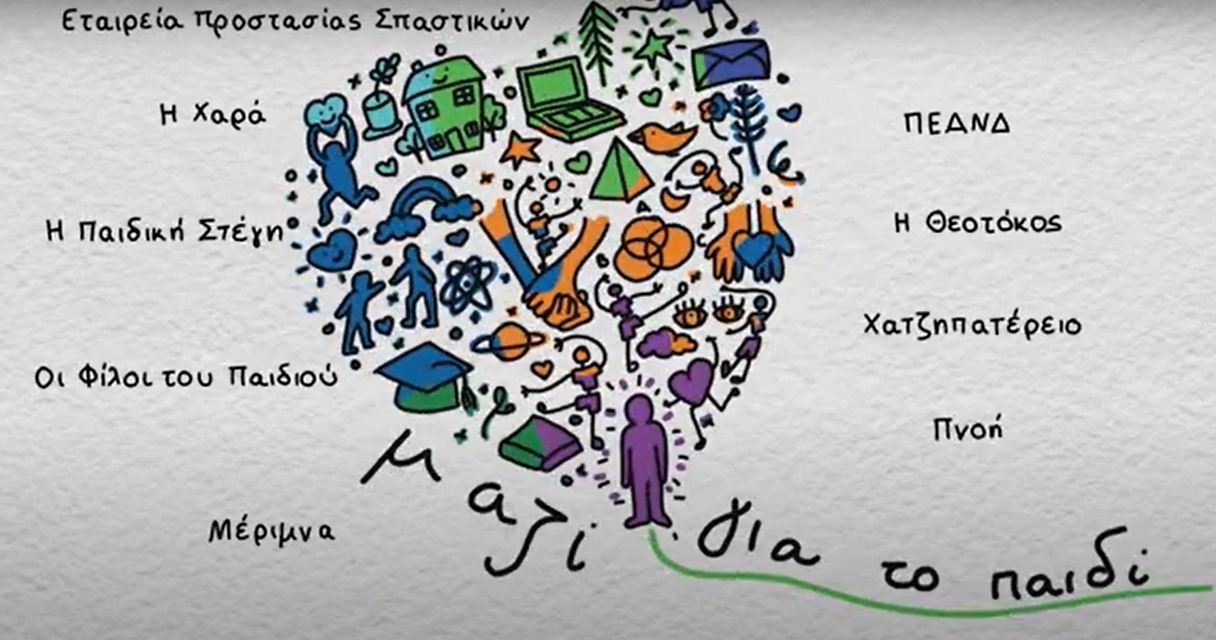 Εταιρεία Προστασίας Σπαστικών
Η Χαρά
Η Παιδική Στέγη
Οι Φίλοι του Παιδιού
Μέριμνα
ΠΕΑΝΔ
Η Θεοτόκος
Χατζηπατέρειο
Πνοή
μαζί για το παιδί